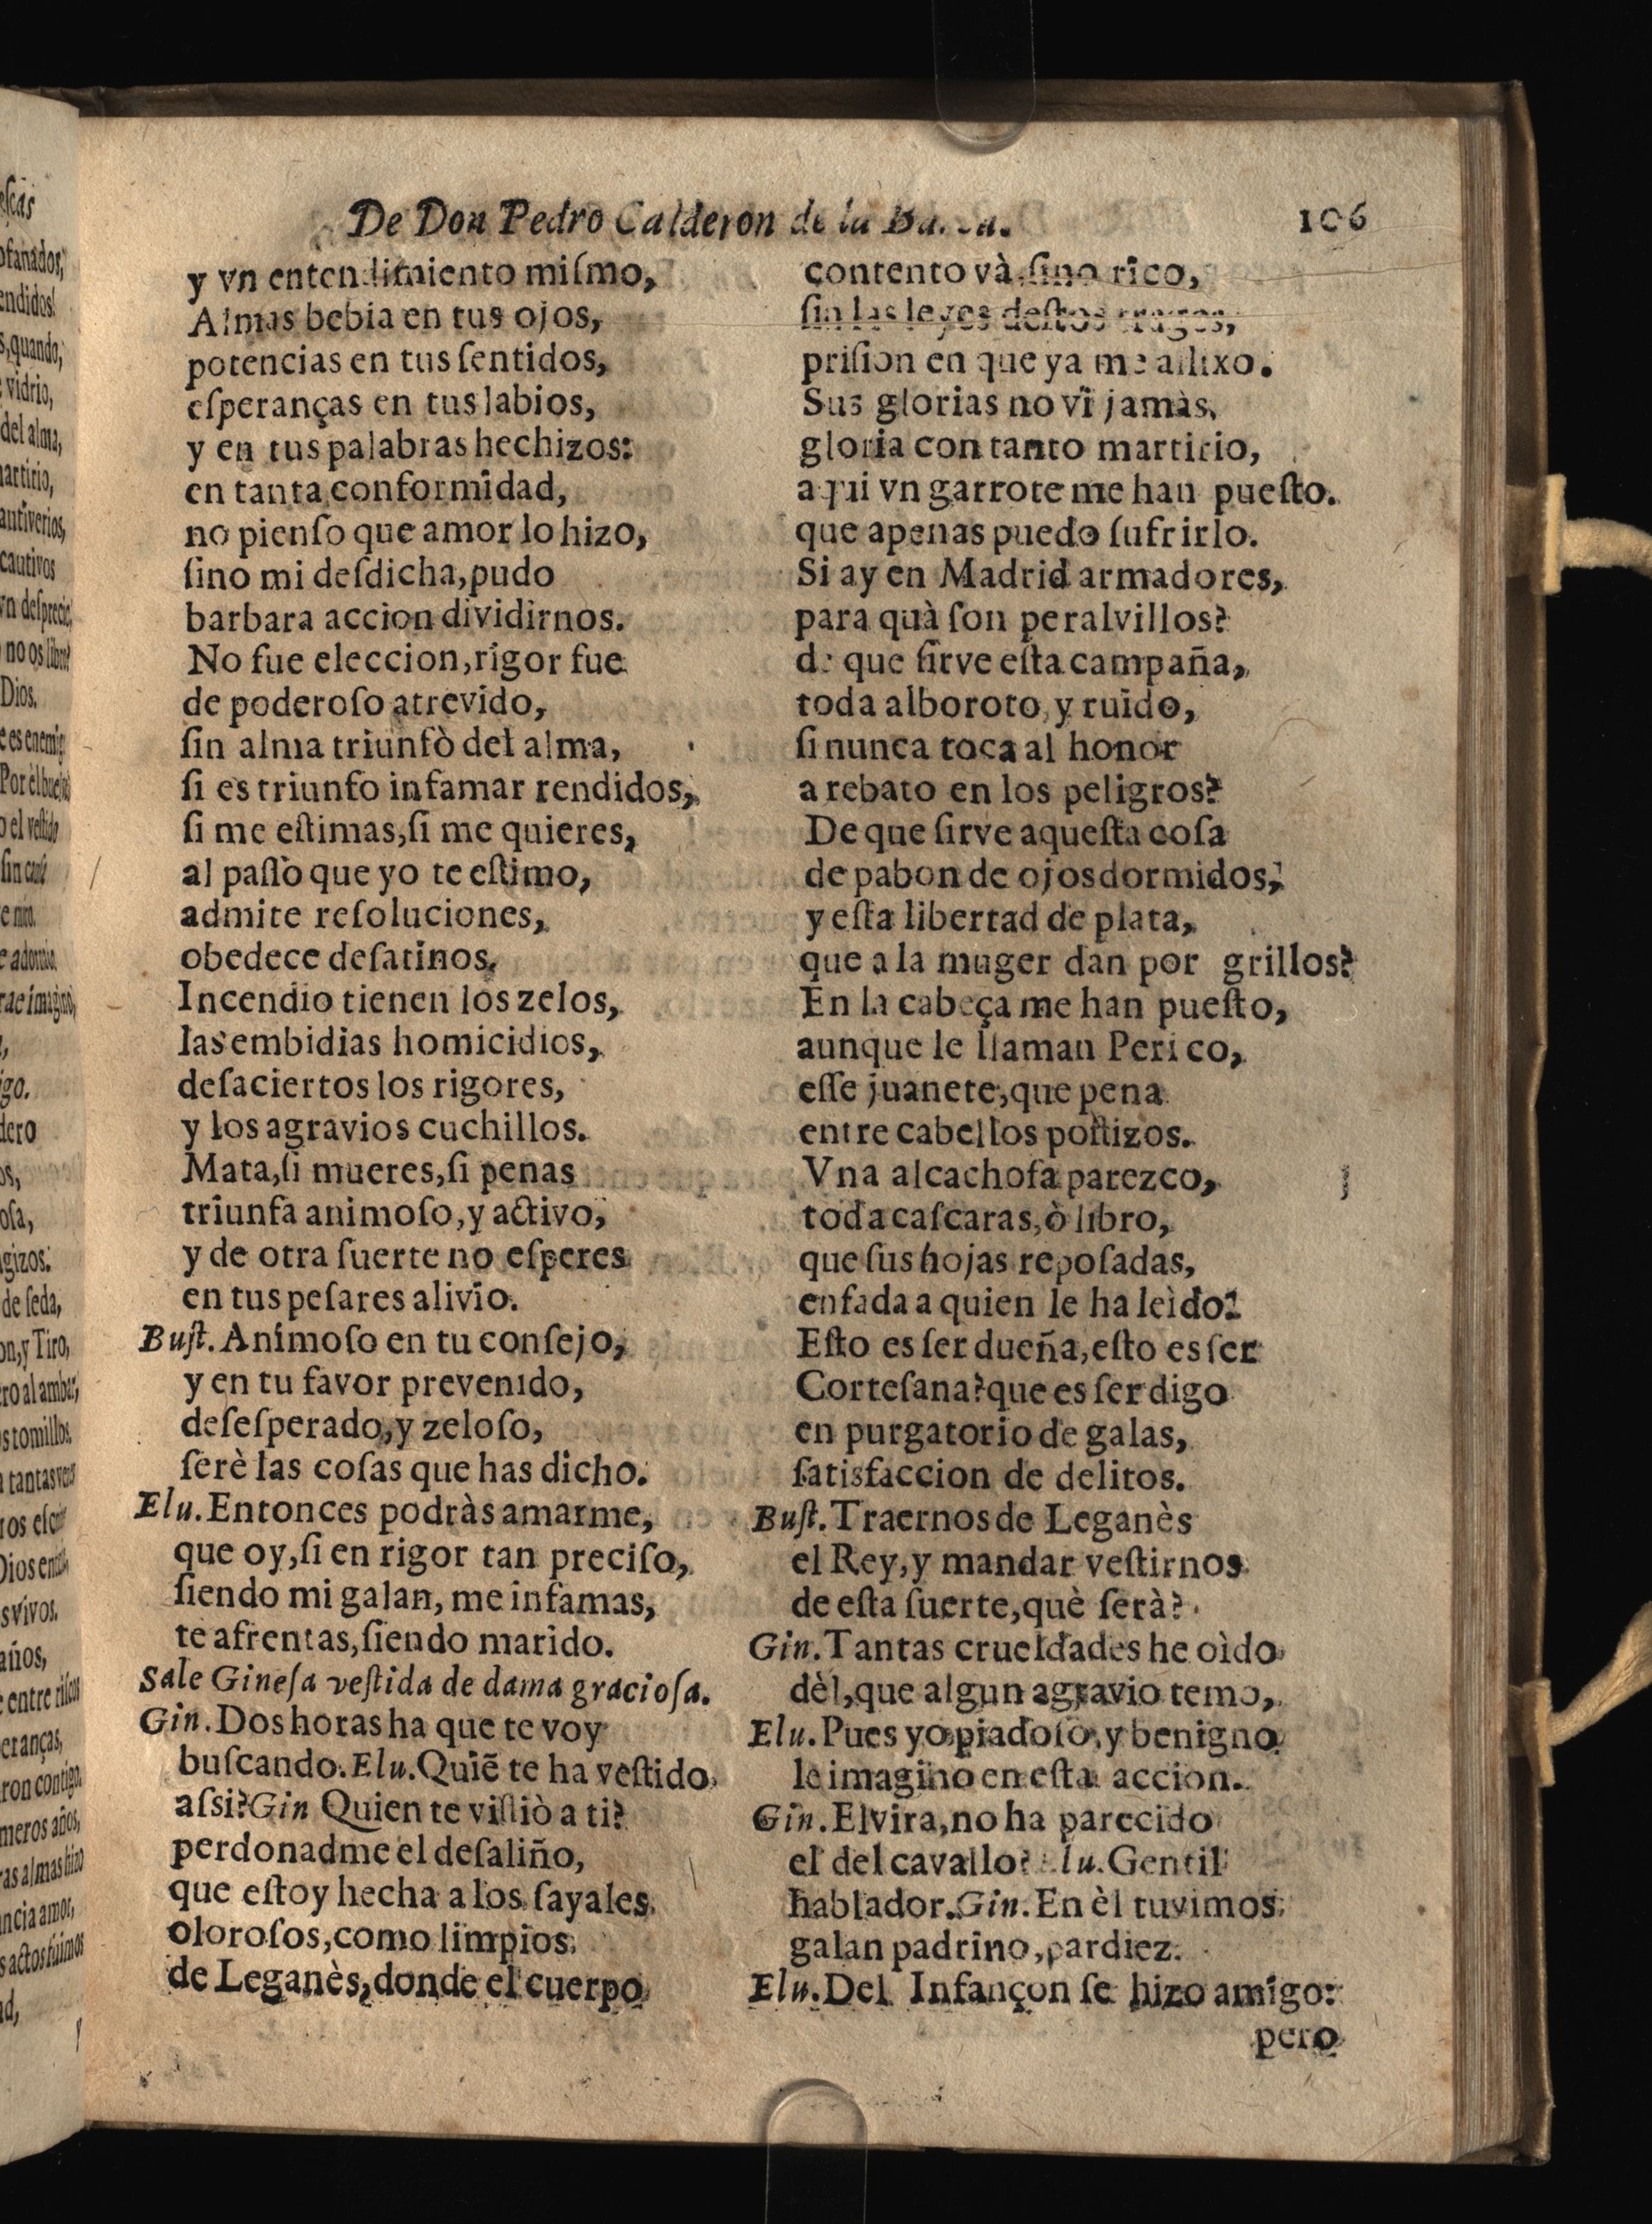 De Don Pedro Calderon de la Barca.
106
y vn entendimiento miſmo,
Almas bebia en tus ojos,
potencias en tus ſentidos,
eſperanças en tus labios,
y en tus palabras hechizos:
en tanta conformidad,
no pienſo que amor lo hizo,
ſino mi deſdicha, pudo
barbara accion dividirnos.
No fue eleccion, rigor fue
de poderoſo atrevido,
ſin alma triunfò del alma,
ſi es triunfo infamar rendidos,
ſi me eſtimas, ſi me quieres,
al paſſo que yo te eſtimo,
admite reſoluciones,
obedece deſatinos.
Incendio tienen los zelos,
las embidias homicidios,
deſaciertos los rigores,
y los agravios cuchillos.
Mata, ſi mueres, ſi penas
triunfa animoſo, y activo,
y de otra ſuerte no eſperes
en tus peſares alivio.
Buſt. Animoſo en tu conſejo,
y en tu favor prevenido,
deſeſperado, y zeloſo,
ſerè las coſas que has dicho.
Elu. Entonces podràs amarme,
que oy, ſi en rigor tan preciſo,
ſiendo mi galan, me infamas,
te afrentas, ſiendo marido.
Sale Gineſa veſtida de dama gracioſa.
Gin. Dos horas ha que te voy
buſcando. Elu. Quiē te ha veſtido
aſsi? Gin Quien te viſtiò a ti?
perdonadme el deſaliño,
que eſtoy hecha a los ſayales
oloroſos, como limpios
de Leganès, donde el cuerpo
contento và, ſino rico,
ſin las leyes deſtos trages,
priſion en que ya me aflixo.
Sus glorias no vi jamàs,
gloria con tanto martirio,
aqui vn garrote me han pueſto.
que apenas puedo ſufrirlo.
Si ay en Madrid armadores,
para quà ſon peralvillos?
de que ſirve eſta campaña,
toda alboroto, y ruido,
ſi nunca toca al honor
a rebato en los peligros?
De que ſirve aqueſta coſa
de pabon de ojos dormidos,
y eſta libertad de plata,
que a la muger dan por grillos?
En la cabeça me han pueſto,
aunque le llaman Perico,
eſſe juanete, que pena
entre cabellos poſtizos.
Vna alcachofa parezco,
toda caſcaras, ò libro,
que ſus hojas repoſadas,
enfada a quien le ha leìdo?
Eſto es ſer dueña, eſto es ſer
Corteſana? que es ſer digo
en purgatorio de galas,
ſatisfaccion de delitos.
Buſt. Traernos de Leganès
el Rey, y mandar veſtirnos
de eſta ſuerte, què ſerà?
Gin. Tantas crueldades he oìdo
dèl, que algun agravio temo,
Elu. Pues yo piadoſo, y benigno
le imagino en eſta accion.
Gin. Elvira, no ha parecido
el del cavallo? Elu. Gentil
hablador. Gin. En èl tuvimos
galan padrino, pardiez.
Elu. Del Infançon ſe hizo amigo:
pero